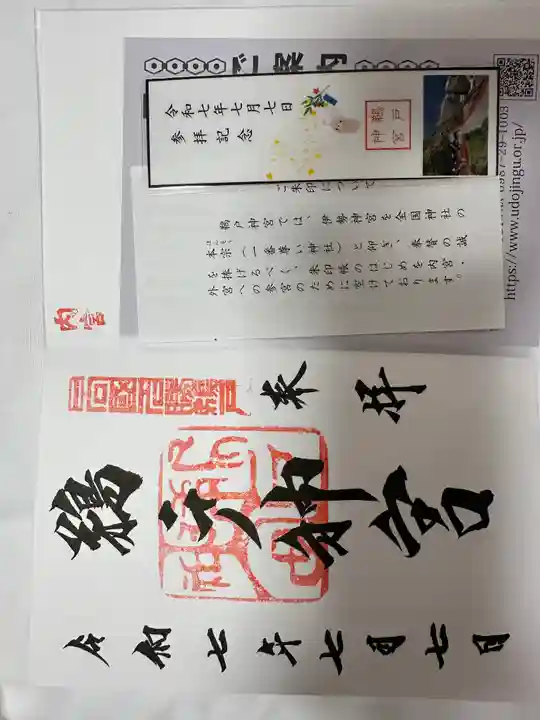 ご案内
https://www.udojingu.or.jp/
0987-29-1003
令和七年七月七日
参拝記念
鵜戸
神宮
ご朱印について
鵜戸神宮では、伊勢神宮を全国神社の
本宗(一番尊い神社)と仰ぎ、奉賛の誠
を捧げるべく、朱印帳のはじめを内宮・
外宮への参宮のために空けております。
内宮
奉拝
鵜戸神宮
令和七年七月七日